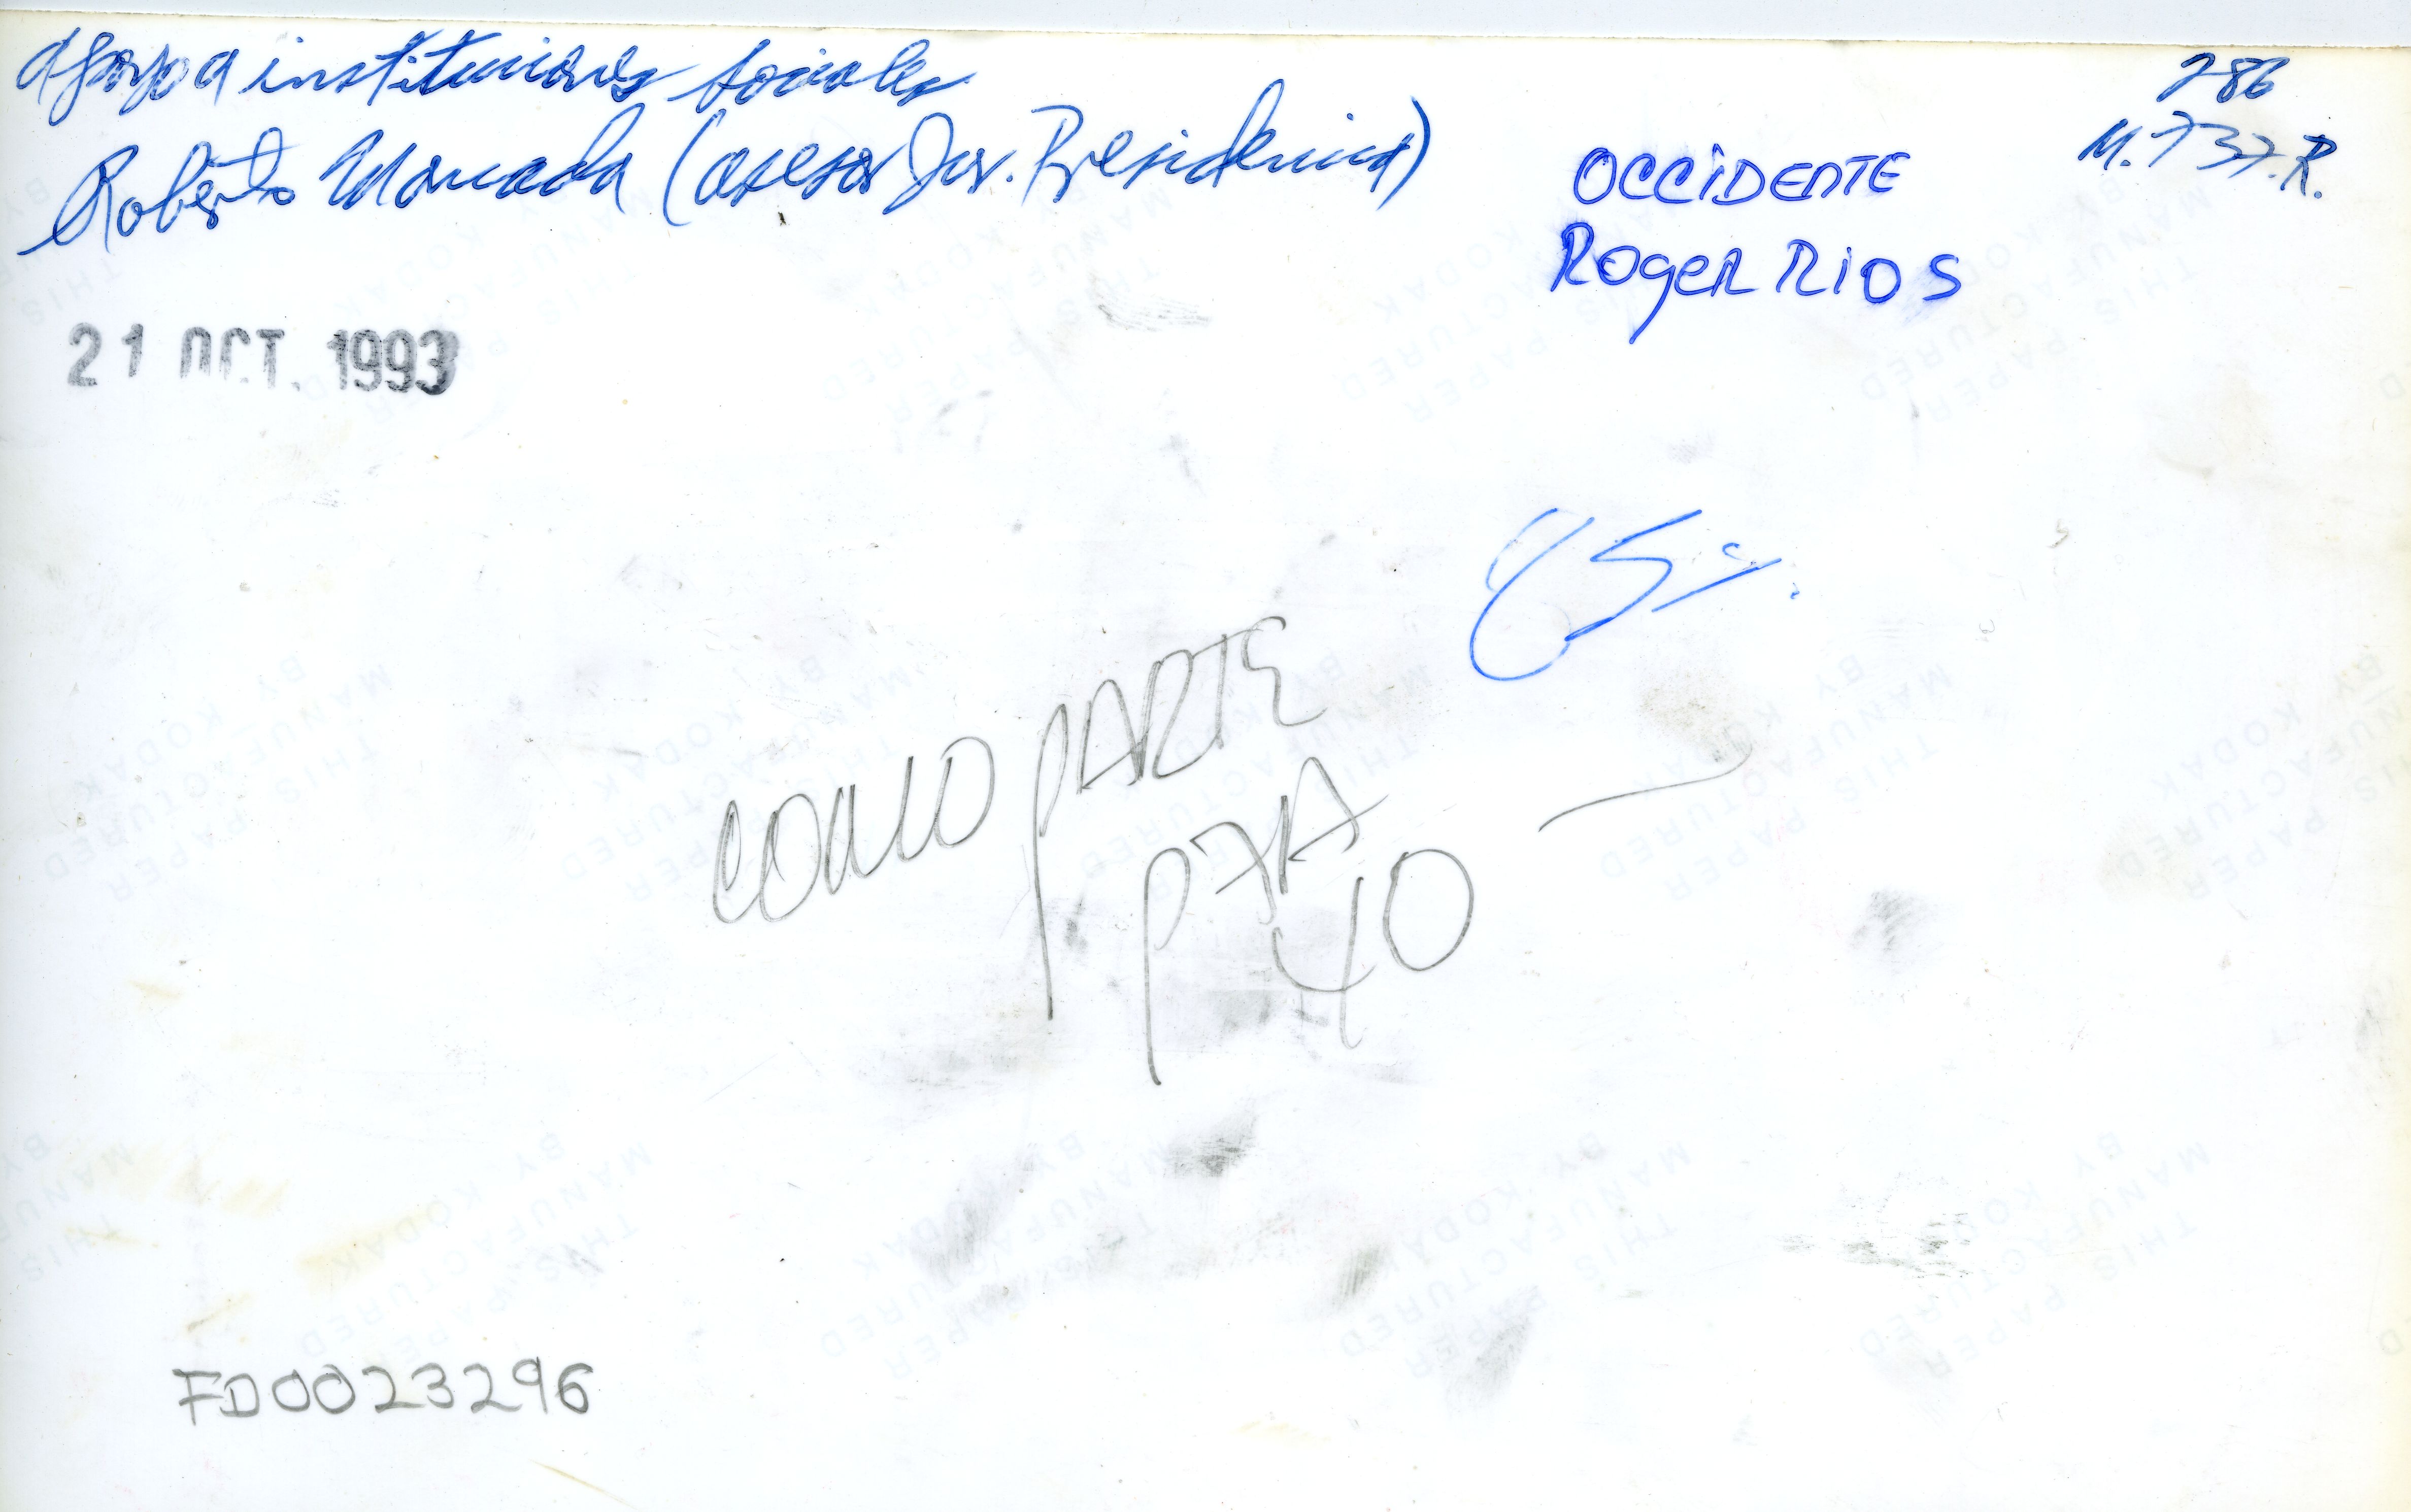 Apoyo a instituciones sociales
Roberto Moncada (asesor Jur. Presidencia)
286
M.737.R.
OCCIDENTE
Roger Rios
21 OCT. 1993
COMO PARTE
40
FD0023296
THIS PAPER
MANUFACTURED
BY KODAK